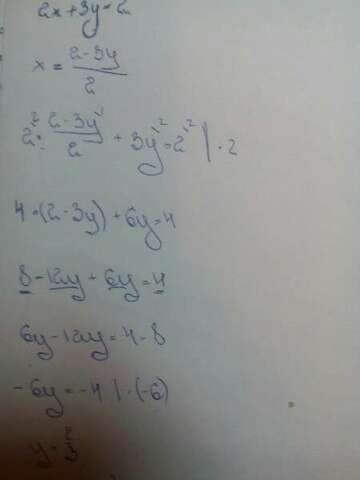 2x+3y=2
x = (2-3y)/2
2² · (2-3y¹)/2 + 3y² = 2² | · 2
4 · (2-3y) + 6y = 4
8 - 12y + 6y = 4
6y - 12y = 4 - 8
-6y = -4 | · (-6)